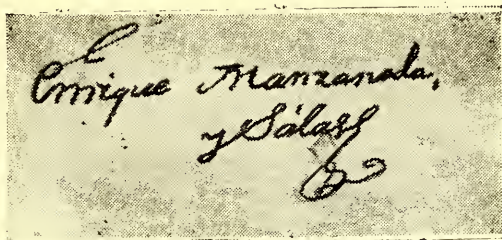 Enrique Manzanada,
y Sálas